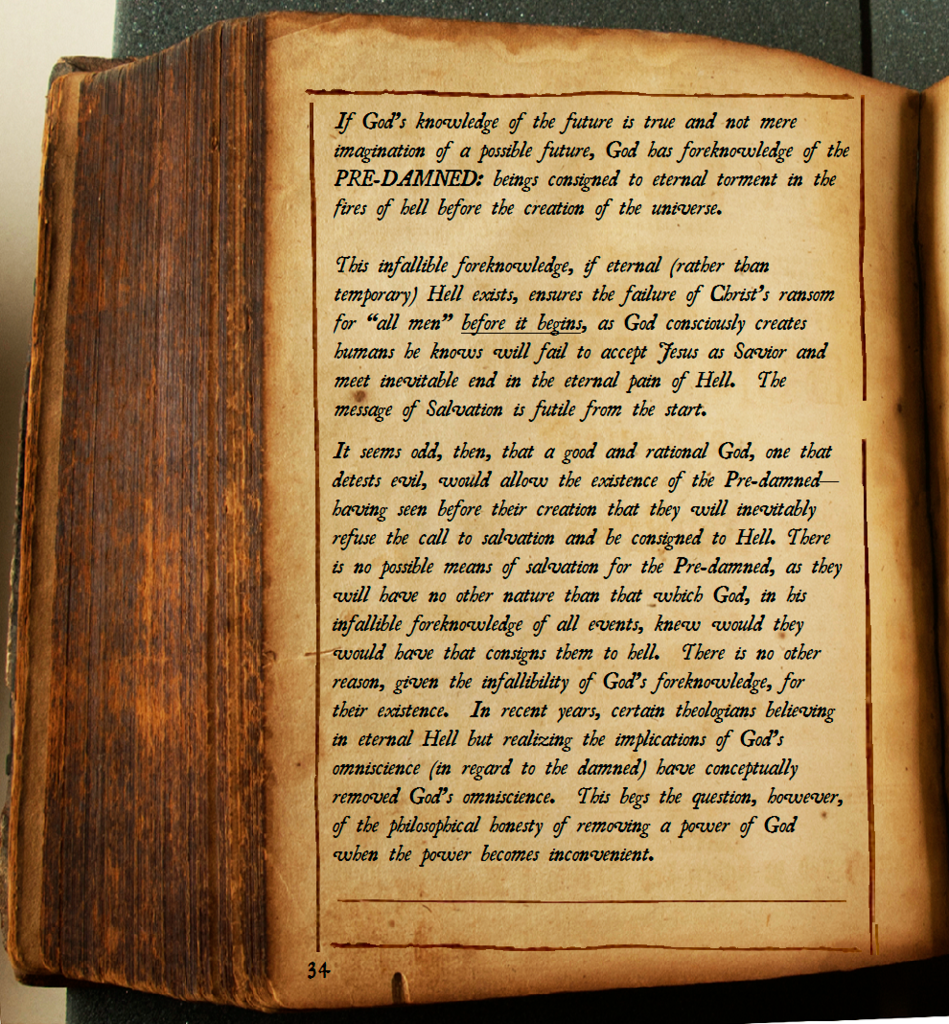 If God's knowledge of the future is true and not mere
imagination of a possible future, God has foreknowledge of the
PRE-DAMNED: beings consigned to eternal torment in the
fires of hell before the creation of the universe.
This infallible foreknowledge, if eternal (rather than
temporary) Hell exists, ensures the failure of Christ's ransom
for “all men” before it begins, as God consciously creates
humans he knows will fail to accept Jesus as Savior and
meet inevitable end in the eternal pain of Hell. The
message of Salvation is futile from the start.
It seems odd, then, that a good and rational God, one that
detests evil, would allow the existence of the Pre-damned—
having seen before their creation that they will inevitably
refuse the call to salvation and be consigned to Hell. There
is no possible means of salvation for the Pre-damned, as they
will have no other nature than that which God, in his
infallible foreknowledge of all events, knew would they
would have that consigns them to hell. There is no other
reason, given the infallibility of God's foreknowledge, for
their existence. In recent years, certain theologians believing
in eternal Hell but realizing the implications of God's
omniscience (in regard to the damned) have conceptually
removed God's omniscience. This begs the question, however,
of the philosophical honesty of removing a power of God
when the power becomes inconvenient.
34